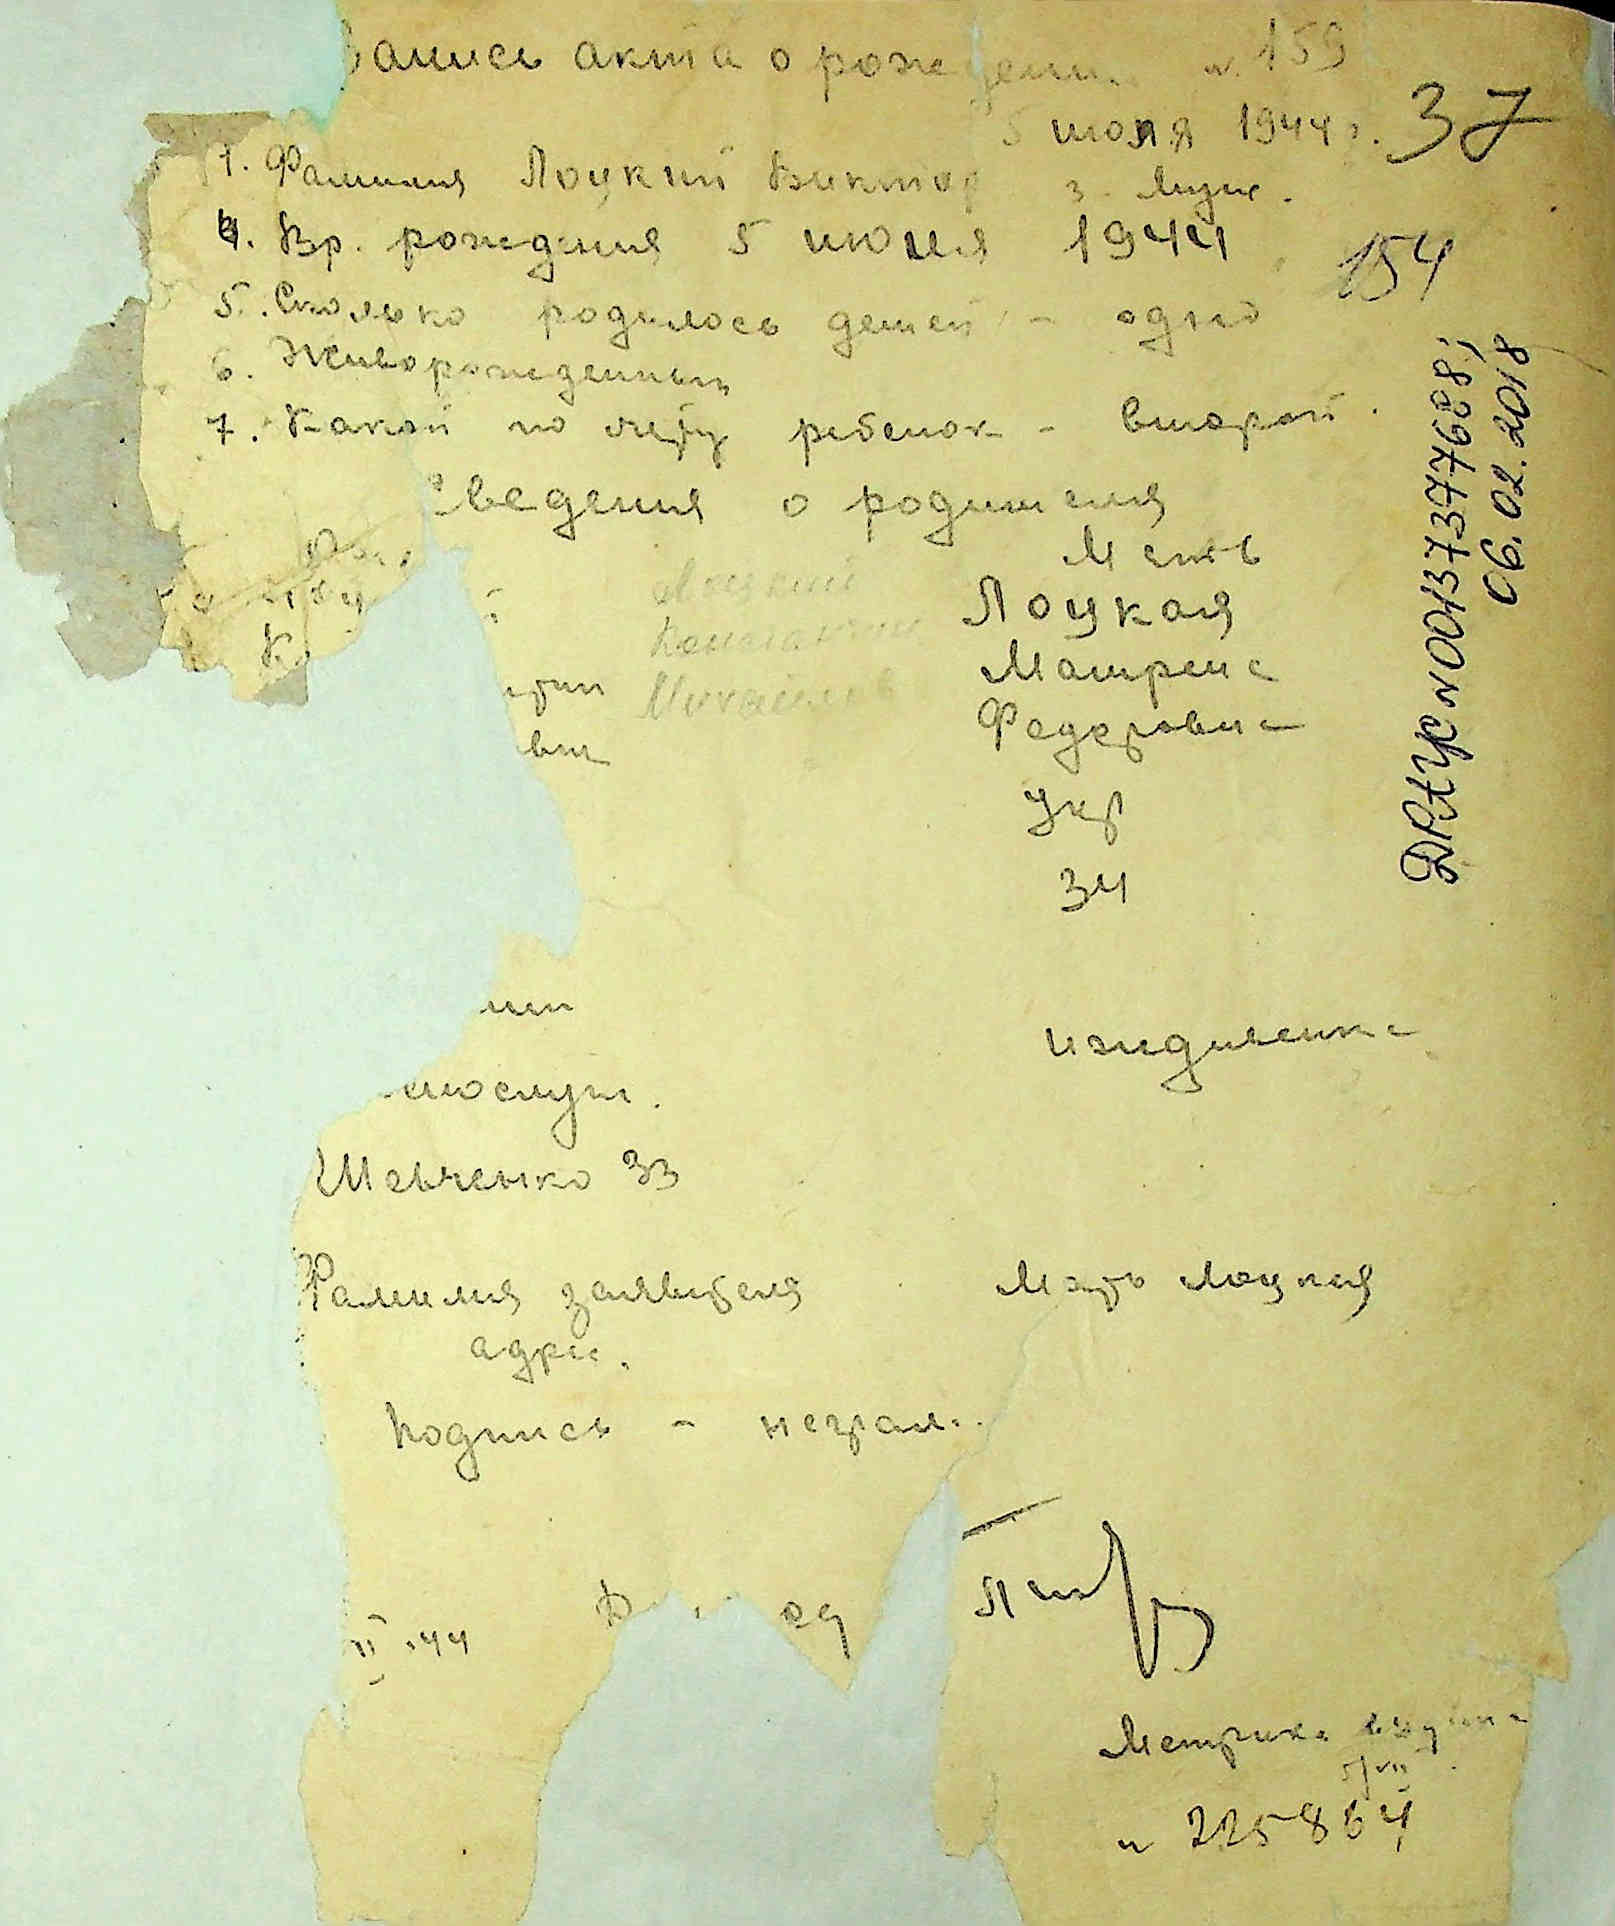 Запись акта о рождении N. 159
5 июля 1944 г. 37
1. Фамилия Лоцкий Виктор 3. Муж.
4. Вр. рождения 5 июня 1944
154
5. Сколько родилось детей - одно
6. Живорожденным
7. Какой по счету ребенок - второй
Сведения о родителя
Мать
Лоцкий Лоцкая
К Константин Матрена
Михайлов Федоровна
вич
Укр
34
иждивенка
служ.
Шевченко 33
Фамилия заявителя Мать Лоцкая
адрес.
Подпись - неграм.
II 44
Метрика выдана
5/VII
N 225864
ДАХУс N 00137377688;
06.02.2018